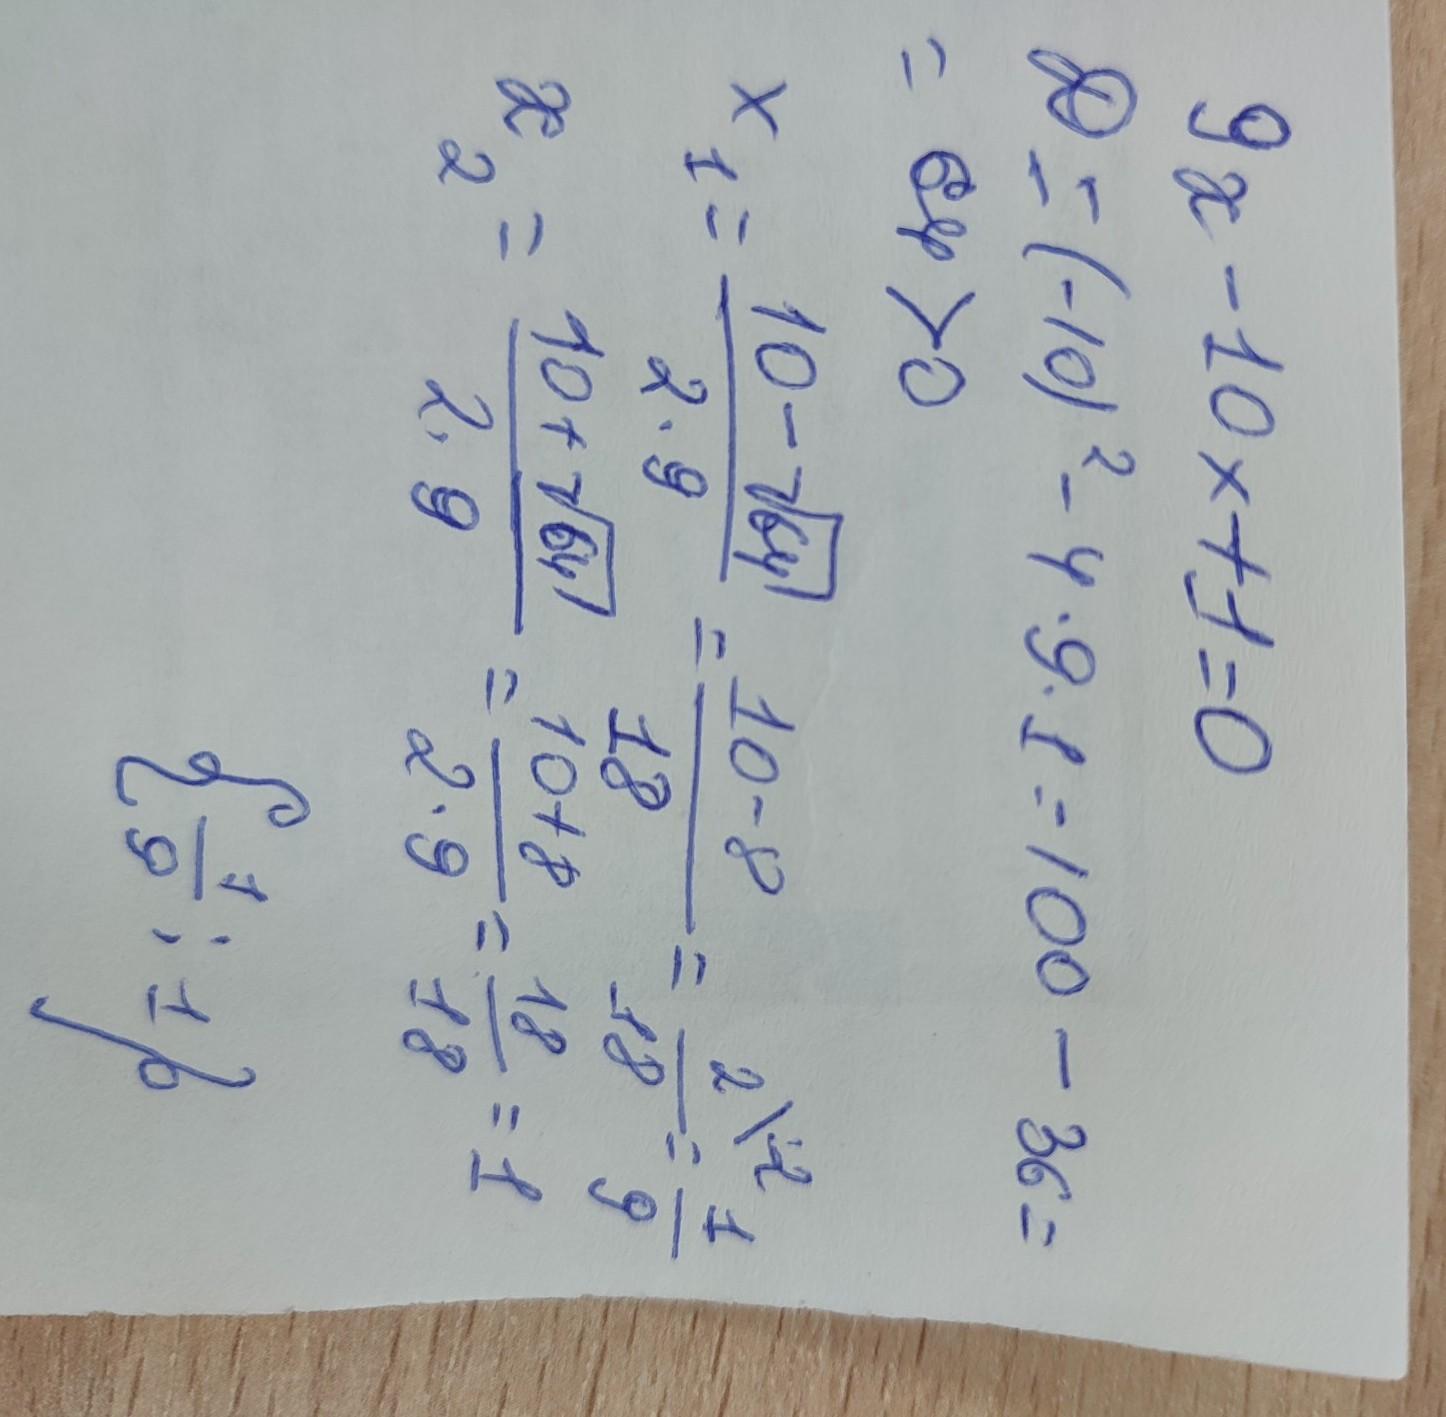 9x - 10x + 1 = 0
D = (-10)² - 4 · 9 · 1 = 100 - 36 =
= 64 > 0
x₁ = (10 - √64)/(2 · 9) = (10 - 8)/18 = 2/18 \:2 = 1/9
x₂ = (10 + √64)/(2 · 9) = (10 + 8)/(2 · 9) = 18/18 = 1
{1/9 ; 1}